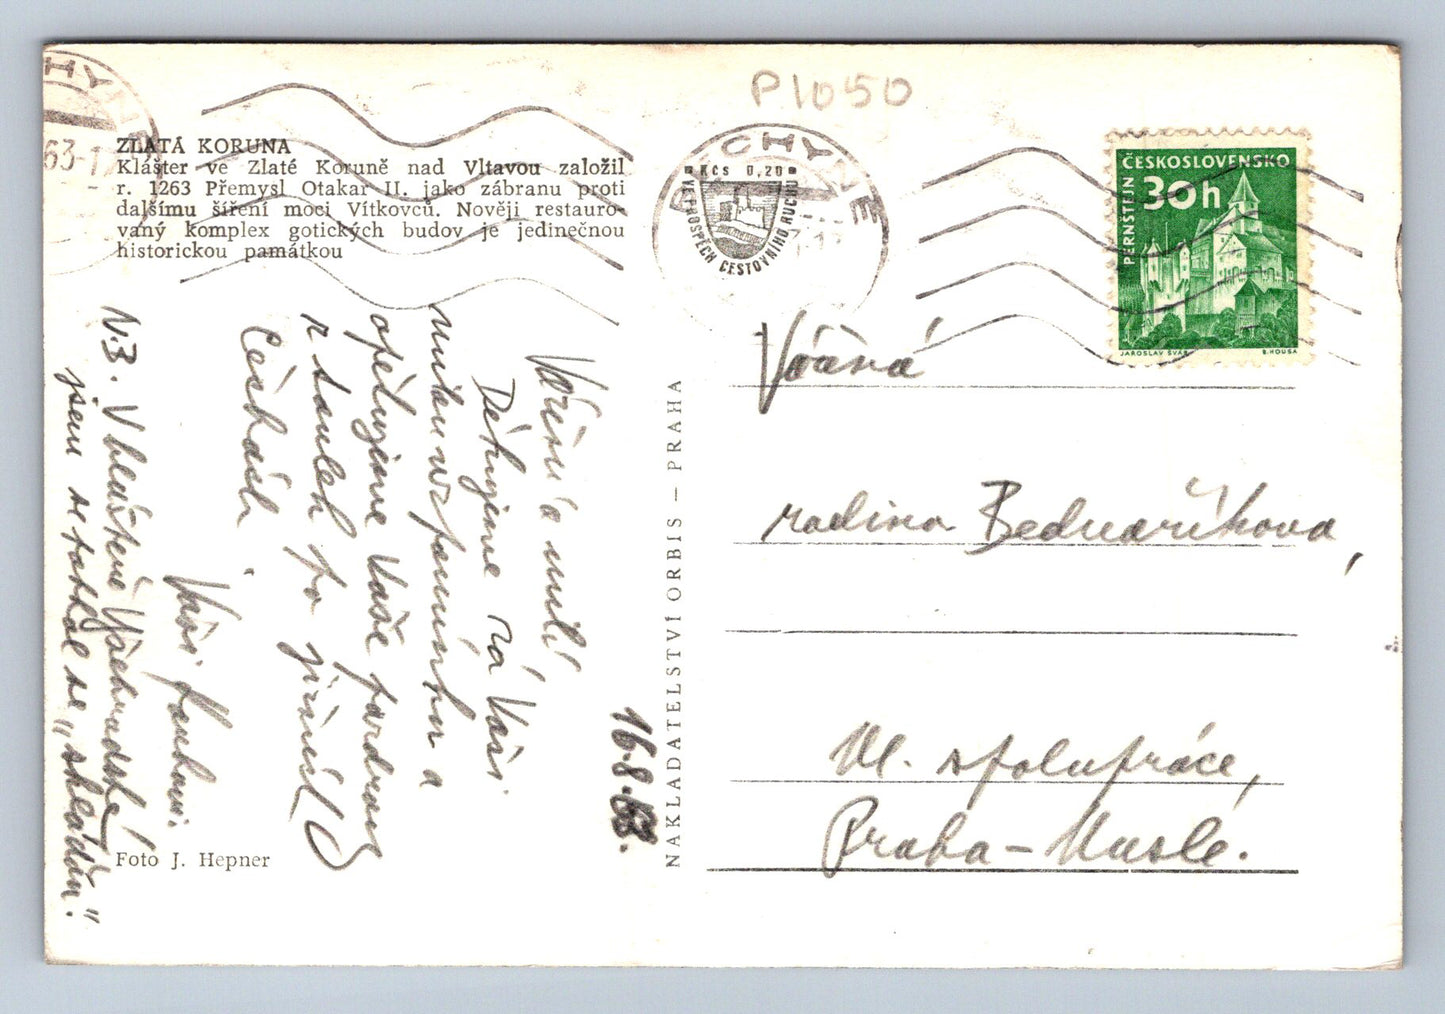 P1050
ZLATÁ KORUNA
Klášter ve Zlaté Koruně nad Vltavou založil
r. 1263 Přemysl Otakar II. jako zábranu proti
dalšímu šíření moci Vítkovců. Nověji restauro-
vaný komplex gotických budov je jedinečnou
historickou památkou
Vážení a milí
Děkujeme za Vaši
milou vzpomínku a
opětujeme Vaše pozdravy
z toulek po jižních
Čechách.
Vaši
N.B. V klášteře Vyšehradské
jsem se
16.8.63.
Foto J. Hepner
NAKLADATELSTVÍ ORBIS — PRAHA
BECHYNĚ
Kčs 0,20
VE PROSPĚCH CESTOVNÍHO RUCHU
CHYNĚ
63-1
ČESKOSLOVENSKO
30h
PERNŠTEJN
JAROSLAV ŠVÁB
B. HOUSA
Vážená
rodina Bednaříkova,
Ul. spolupráce,
Praha – Nusle.